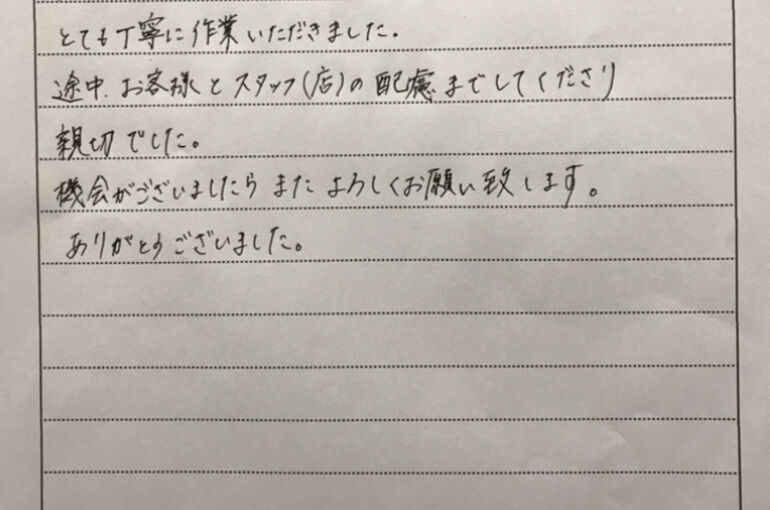 とても丁寧に作業いただきました。
途中、お客様とスタッフ(店)の配慮までしてくださり
親切でした。
機会がございましたら またよろしくお願い致します。
ありがとうございました。